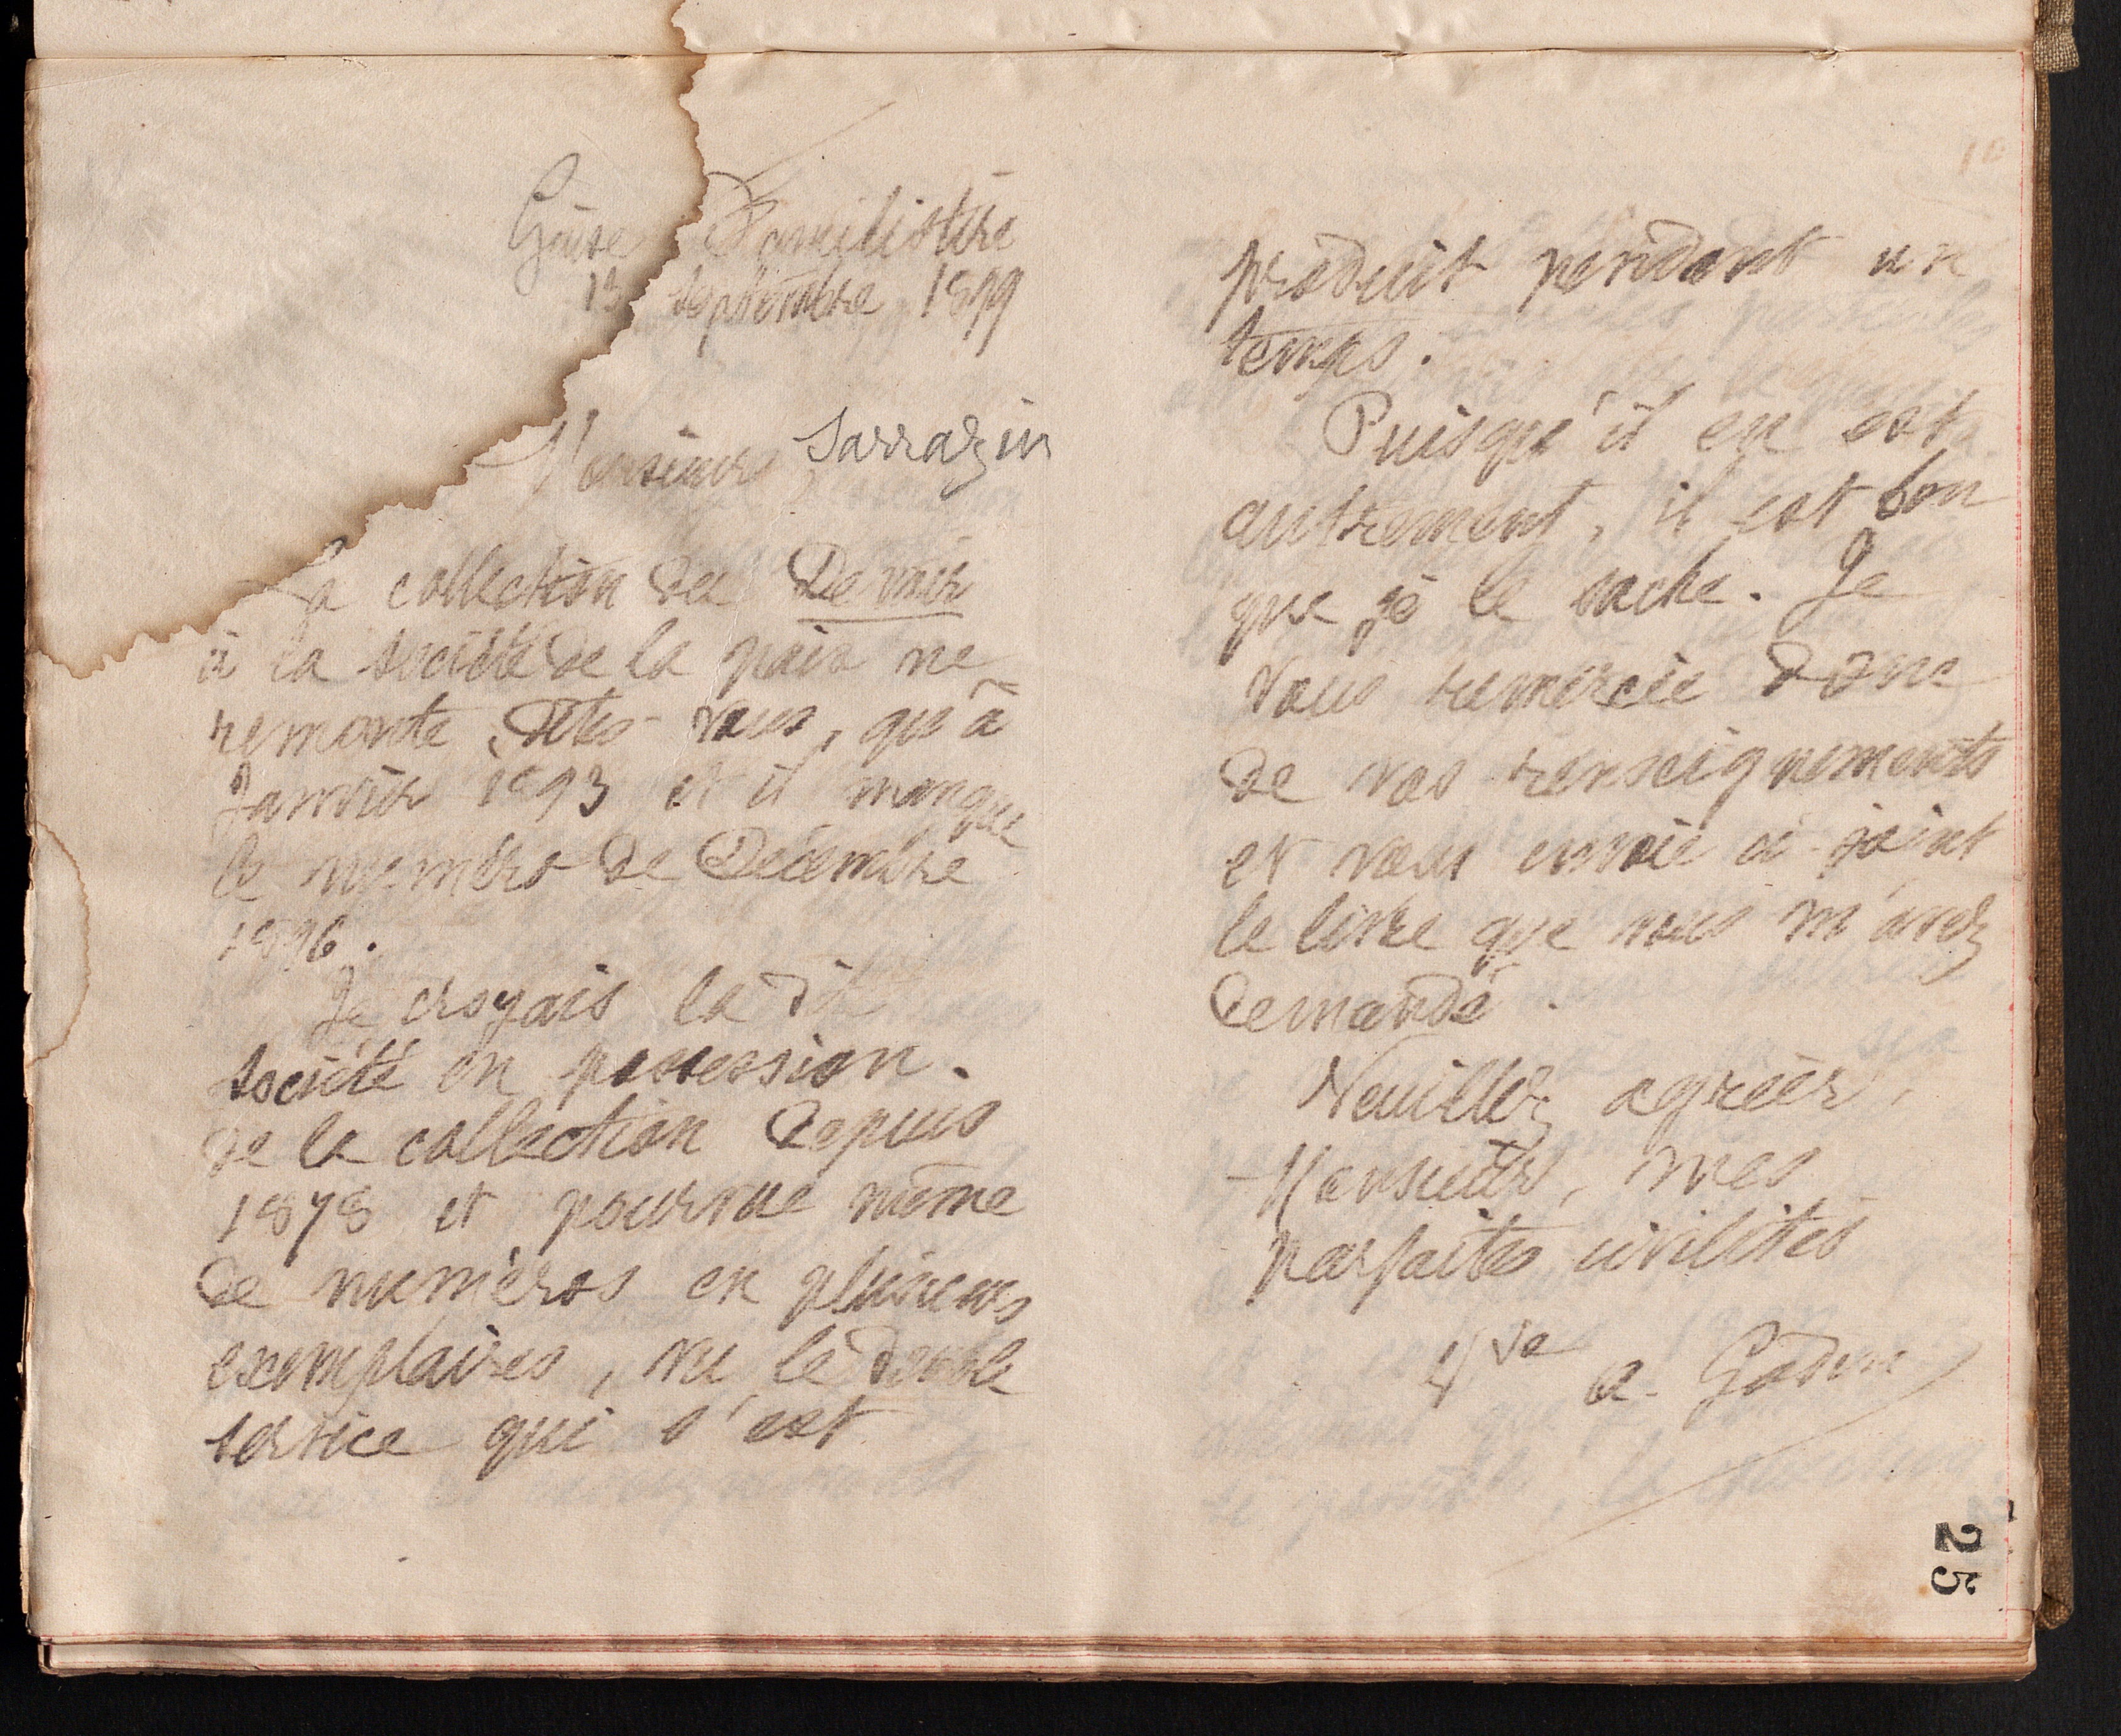 Guise Familistère
13 septembre 1899
Monsieur Sarrazin
La collection du Devoir
à la société de la paix ne
remonte, dites-vous, qu'à
Janvier 1893 et il manque
le numéro de Décembre
1896.
Je croyais la dit
société en possession.
de la collection depuis
1878 et pourvue même
de numéros en plusieurs
exemplaires, vu le double
service qui s'est
produit pendant un
temps.
Puisqu'il en est
autrement, il est bon
que je le sache. Je
vous remercie donc
de vos renseignements
et vous envoie ci-joint
le livre que vous m'avez
demandé.
Veuillez agréer,
Monsieur, mes
parfaites civilités
Vve a. Godin
25